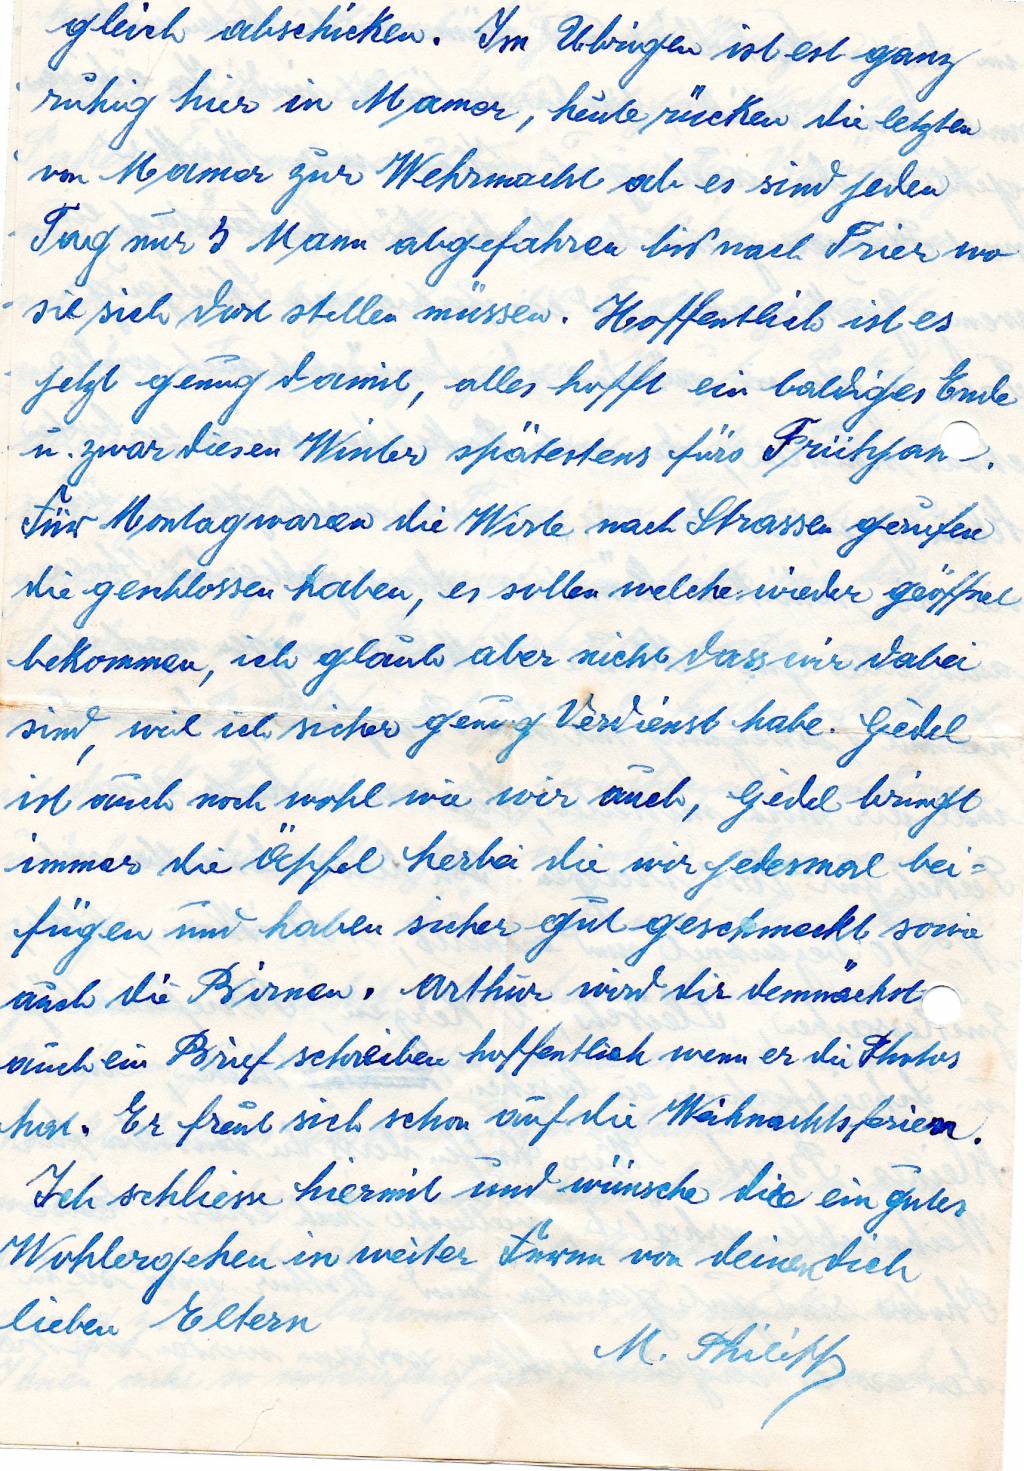 gleich abschicken. Im Übrigen ist est ganz
ruhig hier in Mamer, heute rücken die letzten
von Mamer zur Wehrmacht ab es sind jeden
Tag nur 3 Mann abgefahren bis nach Trier wo
sie sich dort stellen müssen. Hoffentlich ist es
jetzt genug damit, alles hofft ein baldiges Ende
u. zwar diesen Winter spätestens fürs Frühjah.
Für Montag waren die Wirte nach Strassen gerufen
die geschlossen haben, es sollen welche wieder geöffnet
bekommen, ich glaub aber nicht dass wir dabei
sind, weil ich sicher genug Verdienst habe. Gedel
ist auch noch wohl wie wir auch, Gedel bringt
immer die Äpfel herbei die wir jedesmal bei=
fügen und haben sicher gut geschmeckt sowie
auch die Birnen. Arthur wird dir demnächst
auch ein Brief schreiben hoffentlich wenn er die Photos
hat. Er freut sich schon auf die Weihnachtsferien.
Ich schliesse hiermit und wünsche dir ein gutes
Wohlergehen in weiter von deinen dich
lieben Eltern
M. Philipp